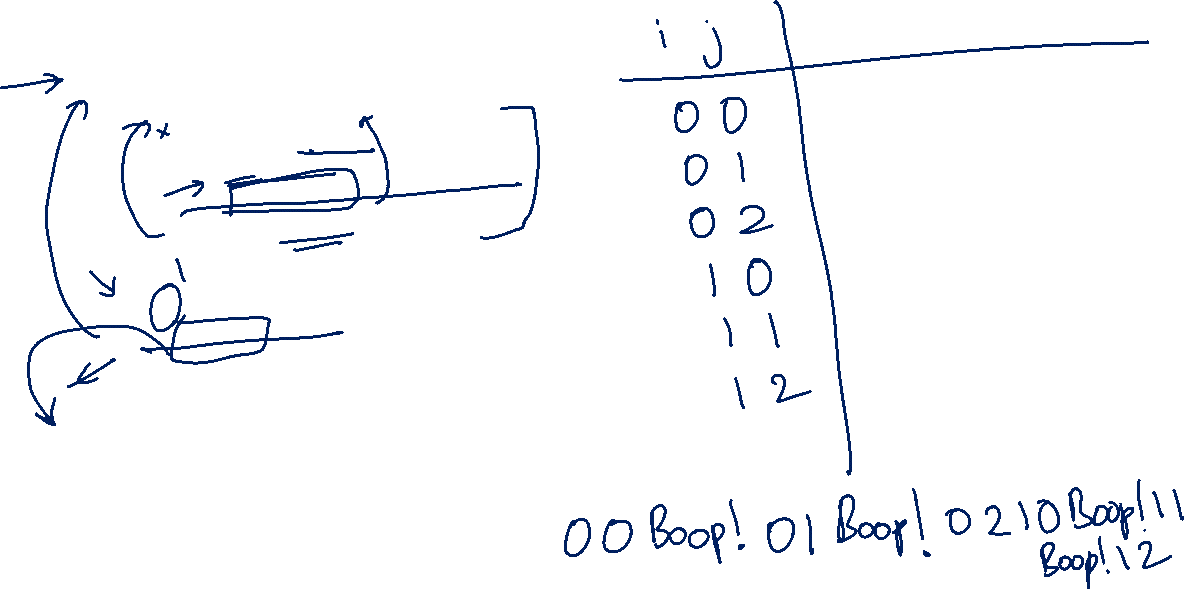 i j
0 0
0 1
0 2
1 0
1 1
1 2
0 1
0 0 Boop! 0 1 Boop! 0 2 1 0 Boop! 1 1
Boop! 1 2